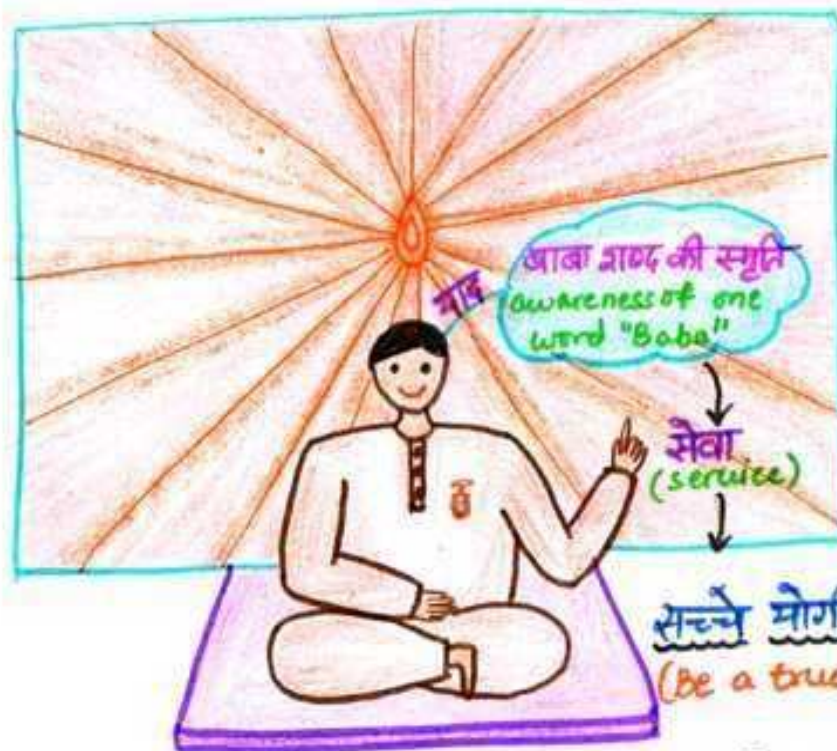 याद
बाबा शब्द की स्मृति
awareness of one
word "Baba"
सेवा
(service)
सच्चे
(Be a